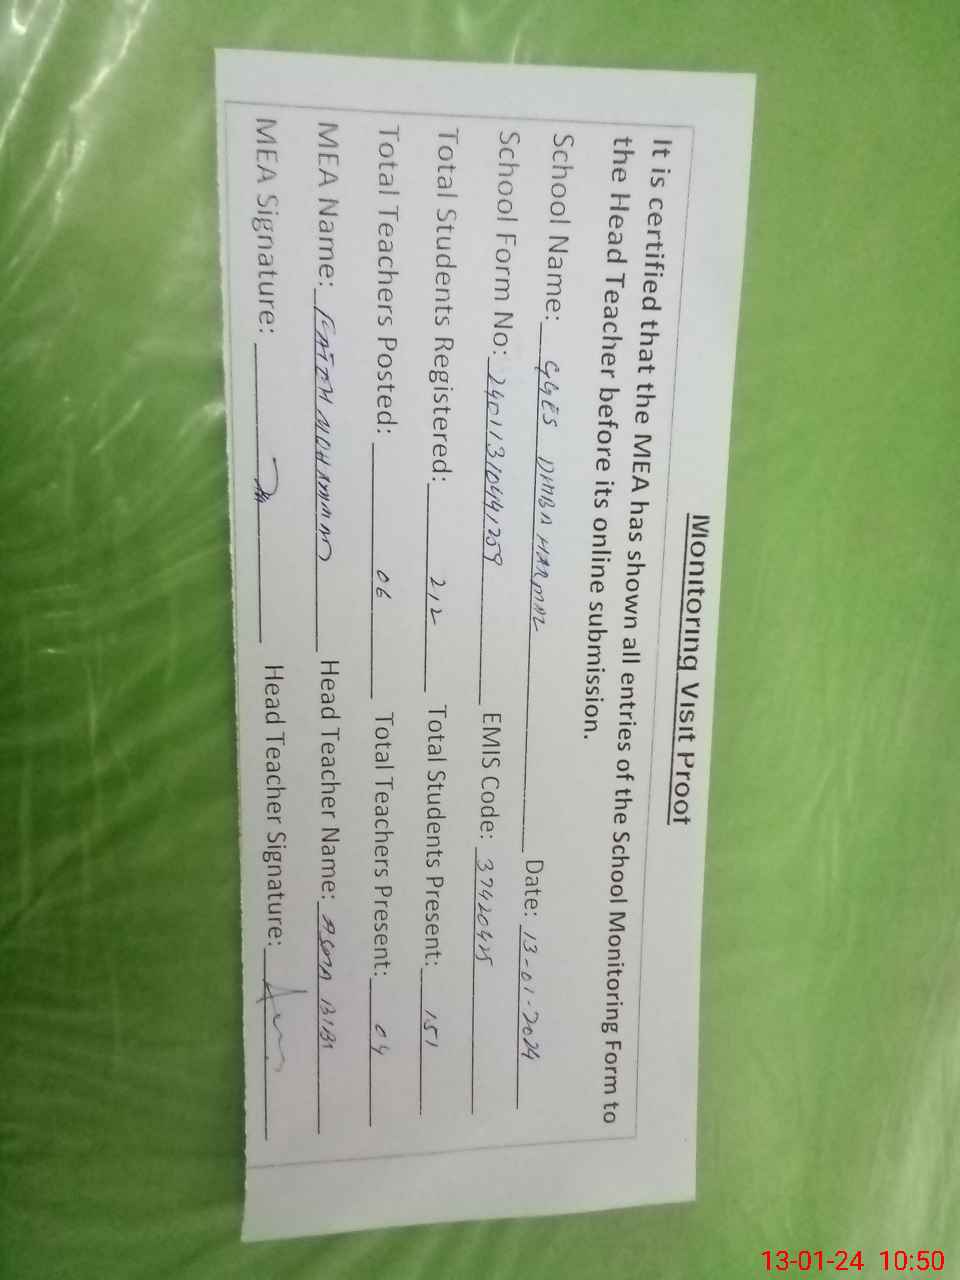 Monitoring Visit Proof
It is certified that the MEA has shown all entries of the School Monitoring Form to
the Head Teacher before its online submission.
School Name: GGES DHABA HARMAL Date: 13-01-2024
School Form No: 24011310441259 EMIS Code: 37420425
Total Students Registered: 212 Total Students Present: 151
Total Teachers Posted: 06 Total Teachers Present: 04
MEA Name: FATEH MOHAMMAD Head Teacher Name: ASMA BIBI
MEA Signature: Head Teacher Signature:
13-01-24 10:50